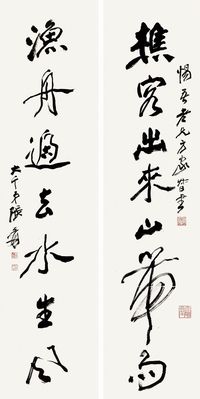 惕吾老兄方家
樵客出來山帶雨
漁舟過去水生風
大千弟張爰